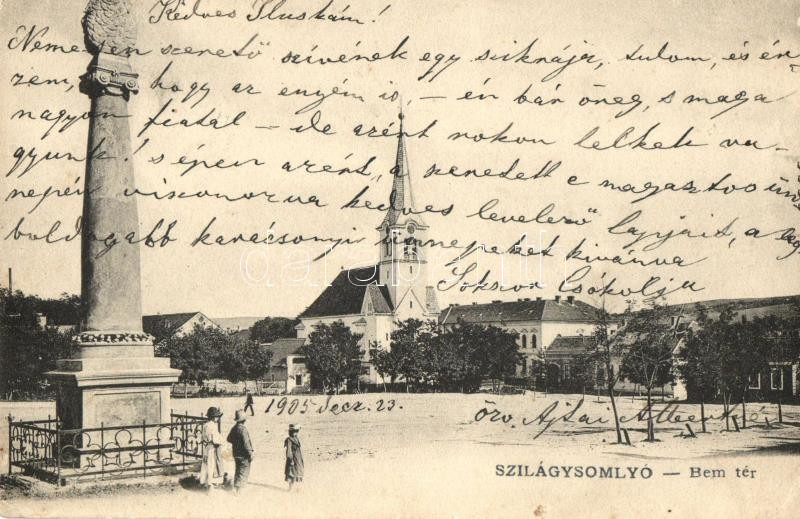 Kedves Iluskám!
Nemesen szerető szívének egy szikrája, tudom, és ér-
zem, hogy az enyém is, — én bár öreg, s maga
nagyon fiatal — de azért rokon lelkek va-
gyunk! s épen azért, a szenedett e magasztos ün-
nepén viszonozva kedves levelező lapjait, a leg-
boldogabb karácsonyi ünnepeket kívánva
Sokszor csókolja
1905 Decz. 23.
özv. Ajtai
SZILÁGYSOMLYÓ — Bem tér
darabanth